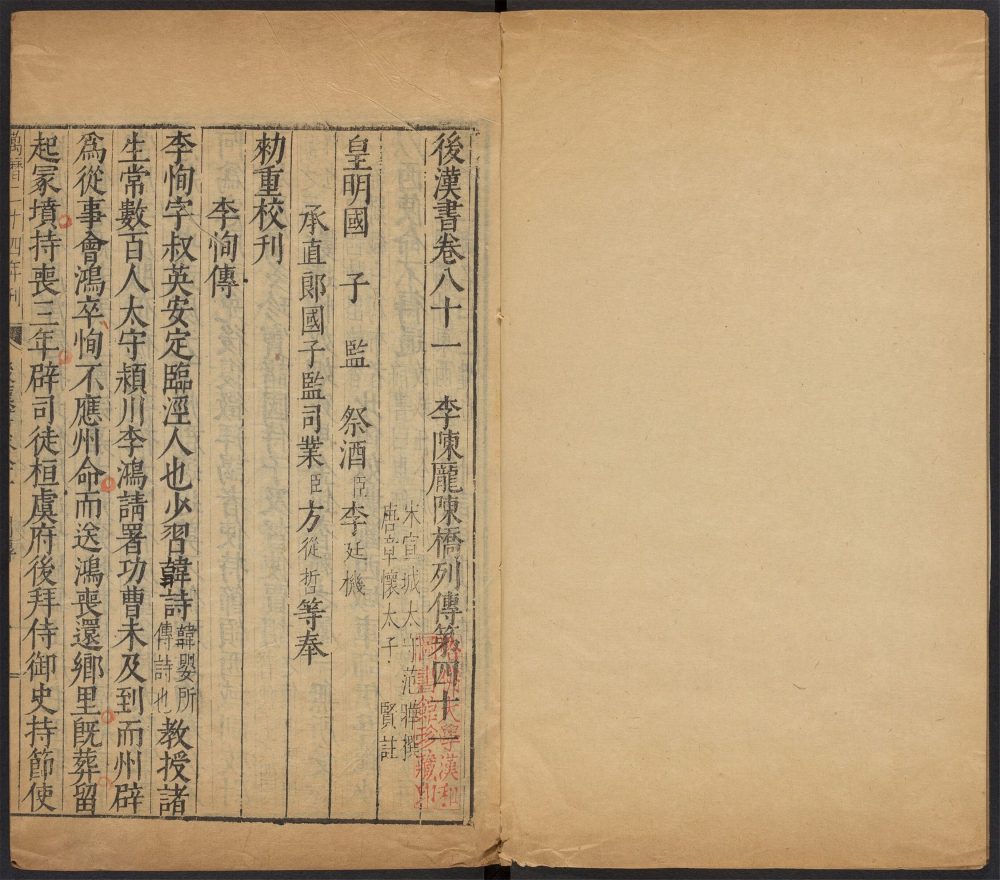 後漢書卷八十一　李陳龐陳橋列傳第四十一
宋宣城太守范曄撰
唐章懷太子　賢註
皇明國　子　監　祭酒臣李廷機
承直郎國子監司業臣方從哲等奉
勑重校刊
李恂傳
李恂字叔英安定臨涇人也少習韓詩韓嬰所傳詩也教授諸
生常數百人太守潁川李鴻請署功曹未及到而州辟
爲從事會鴻卒恂不應州命而送鴻喪還鄉里旣葬留
起冢墳持喪三年辟司徒桓虞府後拜侍御史持節使
萬曆二十四年刊